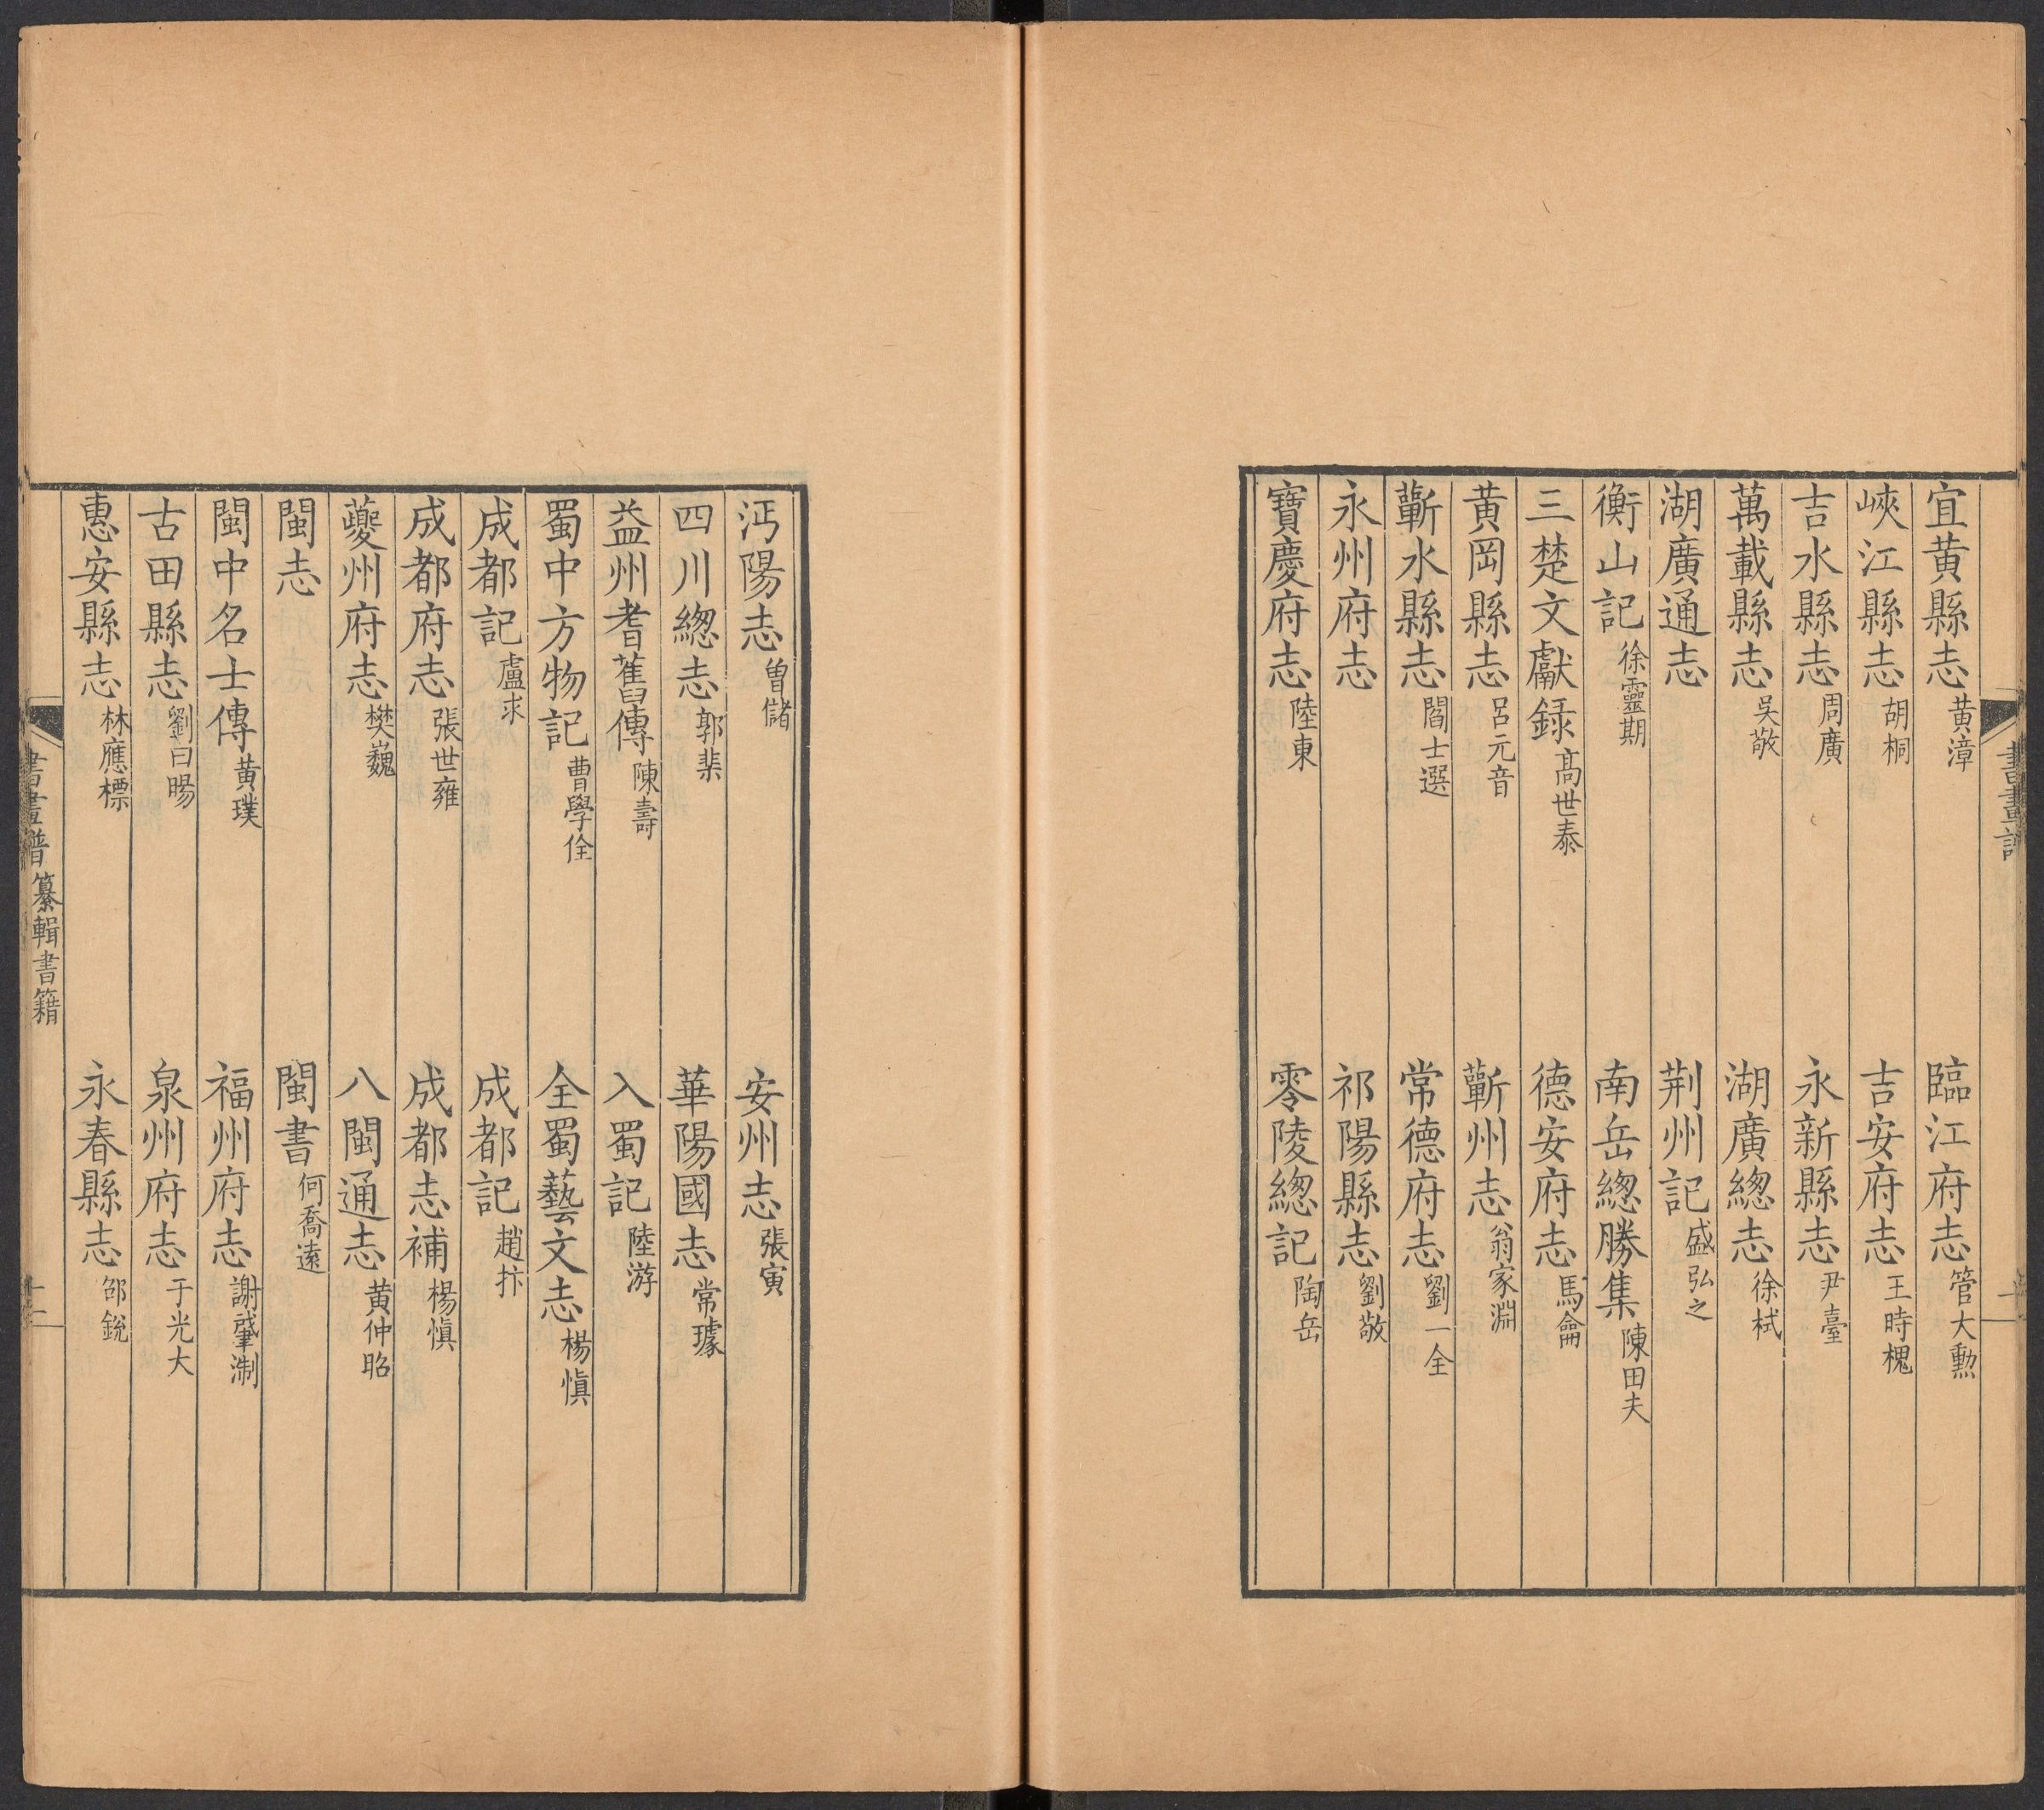 書畫譜
宜黄縣志 黄漳 臨江府志 管大勲
峽江縣志 胡桐 吉安府志 王時槐
吉水縣志 周廣 永新縣志 尹臺
萬載縣志 吳敬 湖廣緫志 徐栻
湖廣通志 荆州記 盛弘之
衡山記 徐靈期 南岳緫勝集 陳田夫
三楚文獻録 髙世泰 德安府志 馬龠
黄岡縣志 呂元音 蘄州志 翁家淵
蘄水縣志 閻士選 常德府志 劉一全
永州府志 祁陽縣志 劉敬
寶慶府志 陸東 零陵緫記 陶岳
沔陽志 曽儲 安州志 張寅
四川緫志 郭棐 華陽國志 常璩
益州耆舊傳 陳壽 入蜀記 陸游
蜀中方物記 曹學佺 全蜀藝文志 楊愼
成都記 盧求 成都記 趙抃
成都府志 張世雍 成都志補 楊愼
夔州府志 樊巍 八閩通志 黄仲昭
閩志 閩書 何喬遠
閩中名士傳 黄璞 福州府志 謝肇淛
古田縣志 劉曰暘 泉州府志 于光大
惠安縣志 林應標 永春縣志 邵銳
書畫譜 纂輯書籍 十二